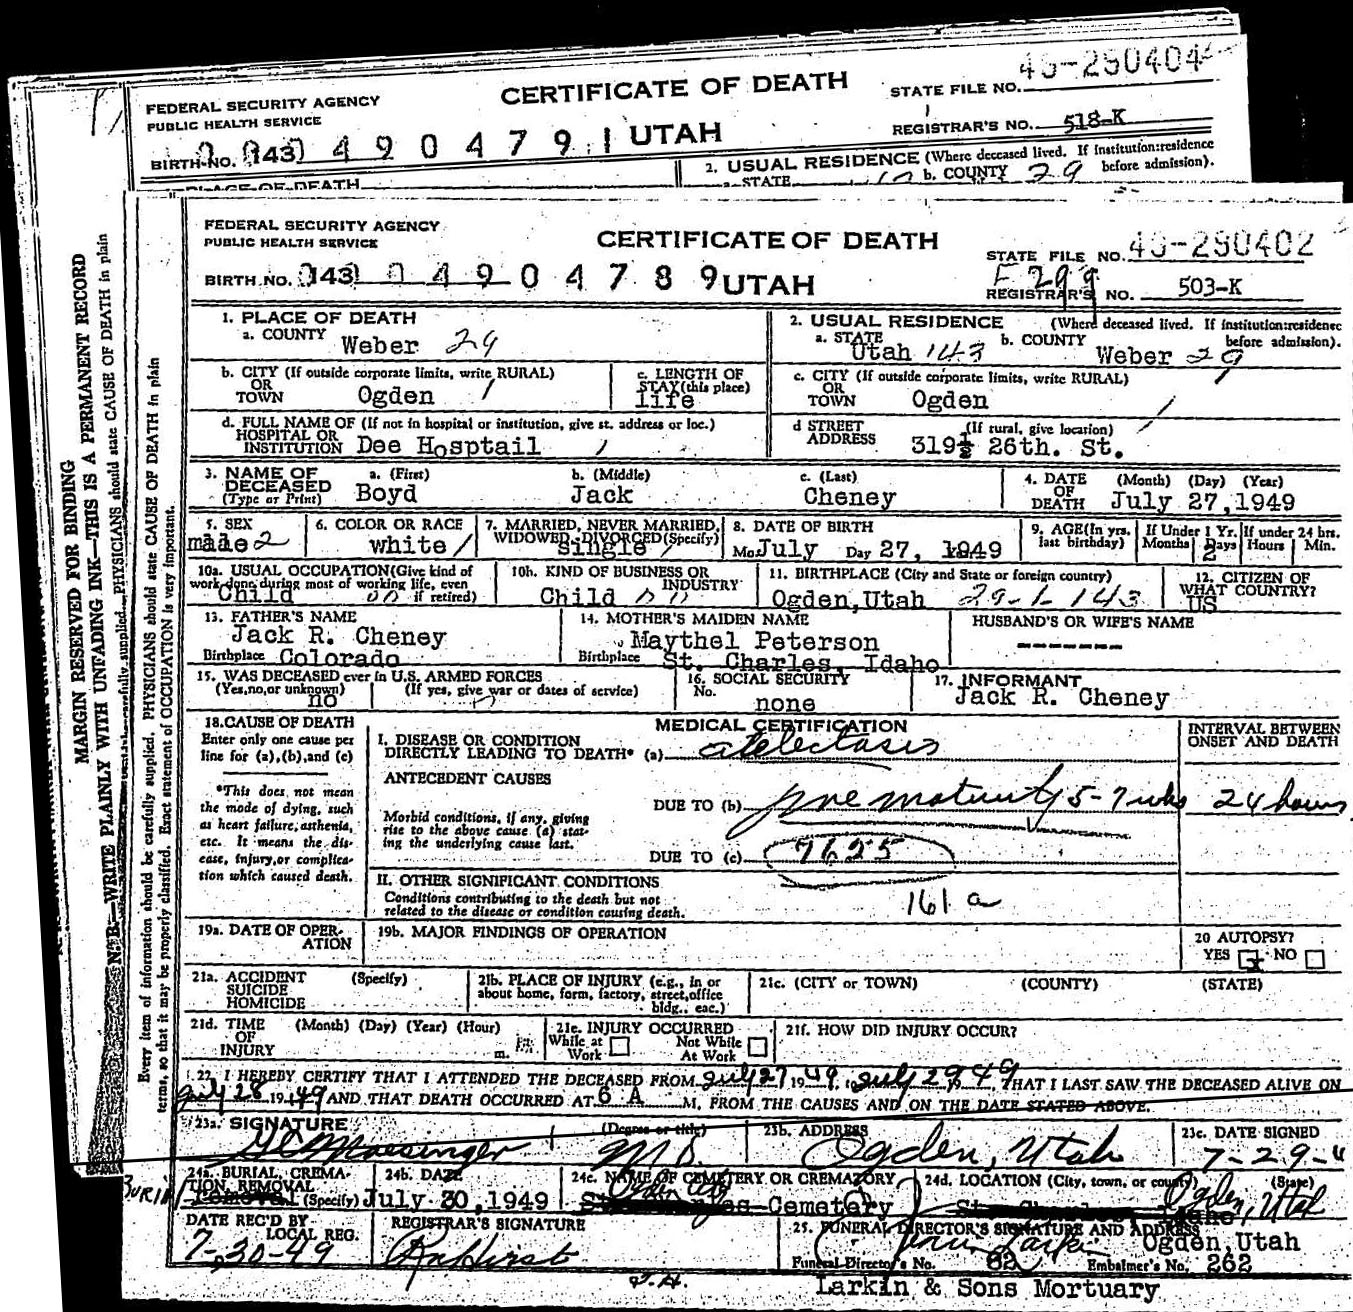 CERTIFICATE OF DEATH
FEDERAL SECURITY AGENCY
PUBLIC HEALTH SERVICE
STATE FILE NO. 49-290404
BIRTH NO. 143 490479 UTAH
REGISTRAR'S NO. 518-K
2. USUAL RESIDENCE (Where deceased lived. If institution:residence before admission).
PLACE OF DEATH
a. STATE b. COUNTY 29
MARGIN RESERVED FOR BINDING
N. B.—WRITE PLAINLY WITH UNFADING INK—THIS IS A PERMANENT RECORD
carefully supplied. PHYSICIANS should state CAUSE OF DEATH in plain
Every item of information should be carefully supplied. PHYSICIANS should state CAUSE OF DEATH in plain
terms, so that it may be properly classified. Exact statement of OCCUPATION is very important.
FEDERAL SECURITY AGENCY
PUBLIC HEALTH SERVICE
CERTIFICATE OF DEATH
STATE FILE NO. 49-290402
BIRTH NO. 143 04904789 UTAH
F 299
REGISTRAR'S NO. 503-K
1. PLACE OF DEATH
a. COUNTY Weber 29
2. USUAL RESIDENCE (Where deceased lived. If institution:residence before admission).
a. STATE Utah 143 b. COUNTY Weber 29
b. CITY (If outside corporate limits, write RURAL)
OR
TOWN Ogden 1
c. LENGTH OF
STAY(this place)
life
c. CITY (If outside corporate limits, write RURAL)
OR
TOWN Ogden 1
d. FULL NAME OF (If not in hospital or institution, give st. address or loc.)
HOSPITAL OR
INSTITUTION Dee Hosptail 1
d STREET
ADDRESS (If rural, give location)
319½ 26th. St.
3. NAME OF
DECEASED
(Type or Print)
a. (First) Boyd
b. (Middle) Jack
c. (Last) Cheney
4. DATE
OF
DEATH
(Month) (Day) (Year)
July 27,1949
5. SEX
male 2
6. COLOR OR RACE
white 1
7. MARRIED, NEVER MARRIED,
WIDOWED, DIVORCED(Specify)
single 1
8. DATE OF BIRTH
Mo. July Day 27, 1949
9. AGE(In yrs.
last birthday)
If Under 1 Yr.
Months Days
2
If under 24 hrs.
Hours Min.
10a. USUAL OCCUPATION(Give kind of
work done during most of working life, even
if retired)
Child 00
10b. KIND OF BUSINESS OR
INDUSTRY
Child 00
11. BIRTHPLACE (City and State or foreign country)
Ogden,Utah 29-1-143
12. CITIZEN OF
WHAT COUNTRY?
US
13. FATHER'S NAME
Jack R. Cheney
Birthplace Colorado
14. MOTHER'S MAIDEN NAME
Maythel Peterson
Birthplace St. Charles, Idaho
HUSBAND'S OR WIFE'S NAME
-------
15. WAS DECEASED ever in U.S. ARMED FORCES
(Yes,no,or unknown) (If yes, give war or dates of service)
no
16. SOCIAL SECURITY
No.
none
17. INFORMANT
Jack R. Cheney
18. CAUSE OF DEATH
Enter only one cause per
line for (a),(b),and (c)
*This does not mean
the mode of dying, such
as heart failure, asthenia,
etc. It means the dis-
ease, injury,or complica-
tion which caused death.
MEDICAL CERTIFICATION
I. DISEASE OR CONDITION
DIRECTLY LEADING TO DEATH* (a) atelectasis
ANTECEDENT CAUSES
DUE TO (b) prematurity 5-7 wks
Morbid conditions, if any, giving
rise to the above cause (a) stat-
ing the underlying cause last.
DUE TO (c) 7625
INTERVAL BETWEEN
ONSET AND DEATH
24 hours
II. OTHER SIGNIFICANT CONDITIONS
Conditions contributing to the death but not
related to the disease or condition causing death.
161 a
19a. DATE OF OPER-
ATION
19b. MAJOR FINDINGS OF OPERATION
20 AUTOPSY?
YES x NO
21a. ACCIDENT (Specify)
SUICIDE
HOMICIDE
21b. PLACE OF INJURY (e.g., in or
about home, form, factory, street,office
bldg., eac.)
21c. (CITY or TOWN) (COUNTY) (STATE)
21d. TIME (Month) (Day) (Year) (Hour)
OF
INJURY m.
21e. INJURY OCCURRED
While at Work Not While At Work
21f. HOW DID INJURY OCCUR?
22. I HEREBY CERTIFY THAT I ATTENDED THE DECEASED FROM July 27 1949, to July 29 49, THAT I LAST SAW THE DECEASED ALIVE ON
July 28 1949 AND THAT DEATH OCCURRED AT 6 A M. FROM THE CAUSES AND ON THE DATE STATED ABOVE.
23a. SIGNATURE (Degree or title)
M.D.
23b. ADDRESS
Ogden, Utah
23c. DATE SIGNED
7-29-4
24a. BURIAL, CREMA-
TION, REMOVAL
Burial removal (Specify)
24b. DATE
July 30,1949
24c. NAME OF CEMETERY OR CREMATORY
Ogden City Cemetery
24d. LOCATION (City, town, or county) (State)
Ogden, Utah
DATE REC'D BY
LOCAL REG.
7-30-49
REGISTRAR'S SIGNATURE
25. FUNERAL DIRECTOR'S SIGNATURE AND ADDRESS
Ogden,Utah
Funeral Director's No. 62 Embalmer's No. 262
Larkin & Sons Mortuary